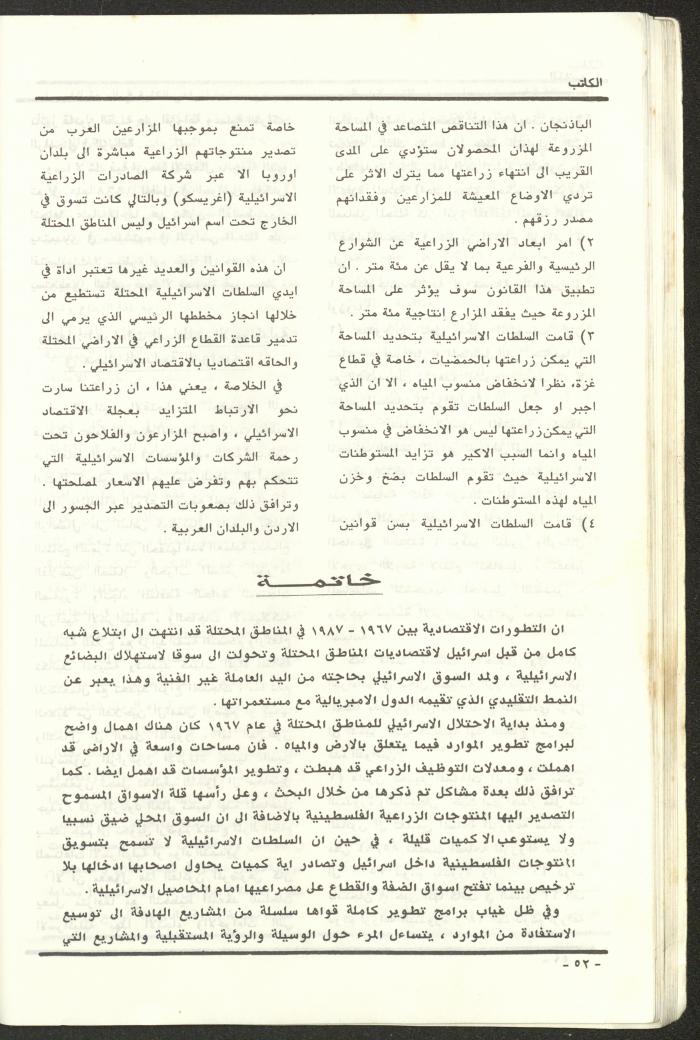 الكاتب
الباذنجان . ان هذا التناقص المتصاعد في المساحة
المزروعة لهذان المحصولان ستؤدي على المدى
القريب الى انتهاء زراعتها مما يترك الاثر على
تردي الاوضاع المعيشة للمزارعين وفقدانهم
مصدر رزقهم .
٢) امر ابعاد الاراضي الزراعية عن الشوارع
الرئيسية والفرعية بما لا يقل عن مئة متر . ان
تطبيق هذا القانون سوف يؤثر على المساحة
المزروعة حيث يفقد المزارع إنتاجية مئة متر .
٣) قامت السلطات الاسرائيلية بتحديد المساحة
التي يمكن زراعتها بالحمضيات ، خاصة في قطاع
غزة، نظرا لانخفاض منسوب المياه ، الا ان الذي
اجبر او جعل السلطات تقوم بتحديد المساحة
التي يمكن زراعتها ليس هو الانخفاض في منسوب
المياه وانما السبب الاكبر هو تزايد المستوطنات
الاسرائيلية حيث تقوم السلطات بضخ وخزن
المياه لهذه المستوطنات .
٤) قامت السلطات الاسرائيلية بسن قوانين
خاصة تمنع بموجبها المزارعين العرب من
تصدير منتوجاتهم الزراعية مباشرة الى بلدان
اوروبا الا عبر شركة الصادرات الزراعية
الاسرائيلية (اغريسكو) وبالتالي كانت تسوق في
الخارج تحت اسم اسرائيل وليس المناطق المحتلة
.
ان هذه القوانين والعديد غيرها تعتبر اداة في
ايدي السلطات الاسرائيلية المحتلة تستطيع من
خلالها انجاز مخططها الرئيسي الذي يرمي الى
تدمير قاعدة القطاع الزراعي في الاراضي المحتلة
والحاقه اقتصاديا بالاقتصاد الاسرائيلي .
في الخلاصة ، يعني هذا ، ان زراعتنا سارت
نحو الارتباط المتزايد بعجلة الاقتصاد
الاسرائيلي ، واصبح المزارعون والفلاحون تحت
رحمة الشركات والمؤسسات الاسرائيلية التي
تتحكم بهم وتفرض عليهم الاسعار لمصلحتها .
وترافق ذلك بصعوبات التصدير عبر الجسور الى
الاردن والبلدان العربية .
خاتمة
ان التطورات الاقتصادية بين ١٩٦٧ - ١٩٨٧ في المناطق المحتلة قد انتهت الى ابتلاع شبه
كامل من قبل اسرائيل لاقتصاديات المناطق المحتلة وتحولت الى سوقا لاستهلاك البضائع
الاسرائيلية ، ولمد السوق الاسرائيلي بحاجته من اليد العاملة غير الفنية وهذا يعبر عن
النمط التقليدي الذي تقيمه الدول الامبريالية مع مستعمراتها .
ومنذ بداية الاحتلال الاسرائيلي للمناطق المحتلة في عام ١٩٦٧ كان هناك اهمال واضح
لبرامج تطوير الموارد فيما يتعلق بالارض والمياه . فان مساحات واسعة في الاراضى قد
اهملت ، ومعدلات التوظيف الزراعي قد هبطت ، وتطوير المؤسسات قد اهمل ايضا . كما
ترافق ذلك بعدة مشاكل تم ذكرها من خلال البحث ، وعل رأسها قلة الاسواق المسموح
التصدير اليها المنتوجات الزراعية الفلسطينية بالاضافة الى ان السوق المحلي ضيق نسبيا
ولا يستوعب الا كميات قليلة ، في حين ان السلطات الاسرائيلية لا تسمح بتسويق
المنتوجات الفلسطينية داخل اسرائيل وتصادر اية كميات يحاول اصحابها ادخالها بلا
ترخيص بينما تفتح اسواق الضفة والقطاع على مصراعيها امام المحاصيل الاسرائيلية .
وفي ظل غياب برامج تطوير كاملة قواها سلسلة من المشاريع الهادفة الى توسيع
الاستفادة من الموارد ، يتساءل المرء حول الوسيلة والرؤية المستقبلية والمشاريع التي
- ٥٢ -